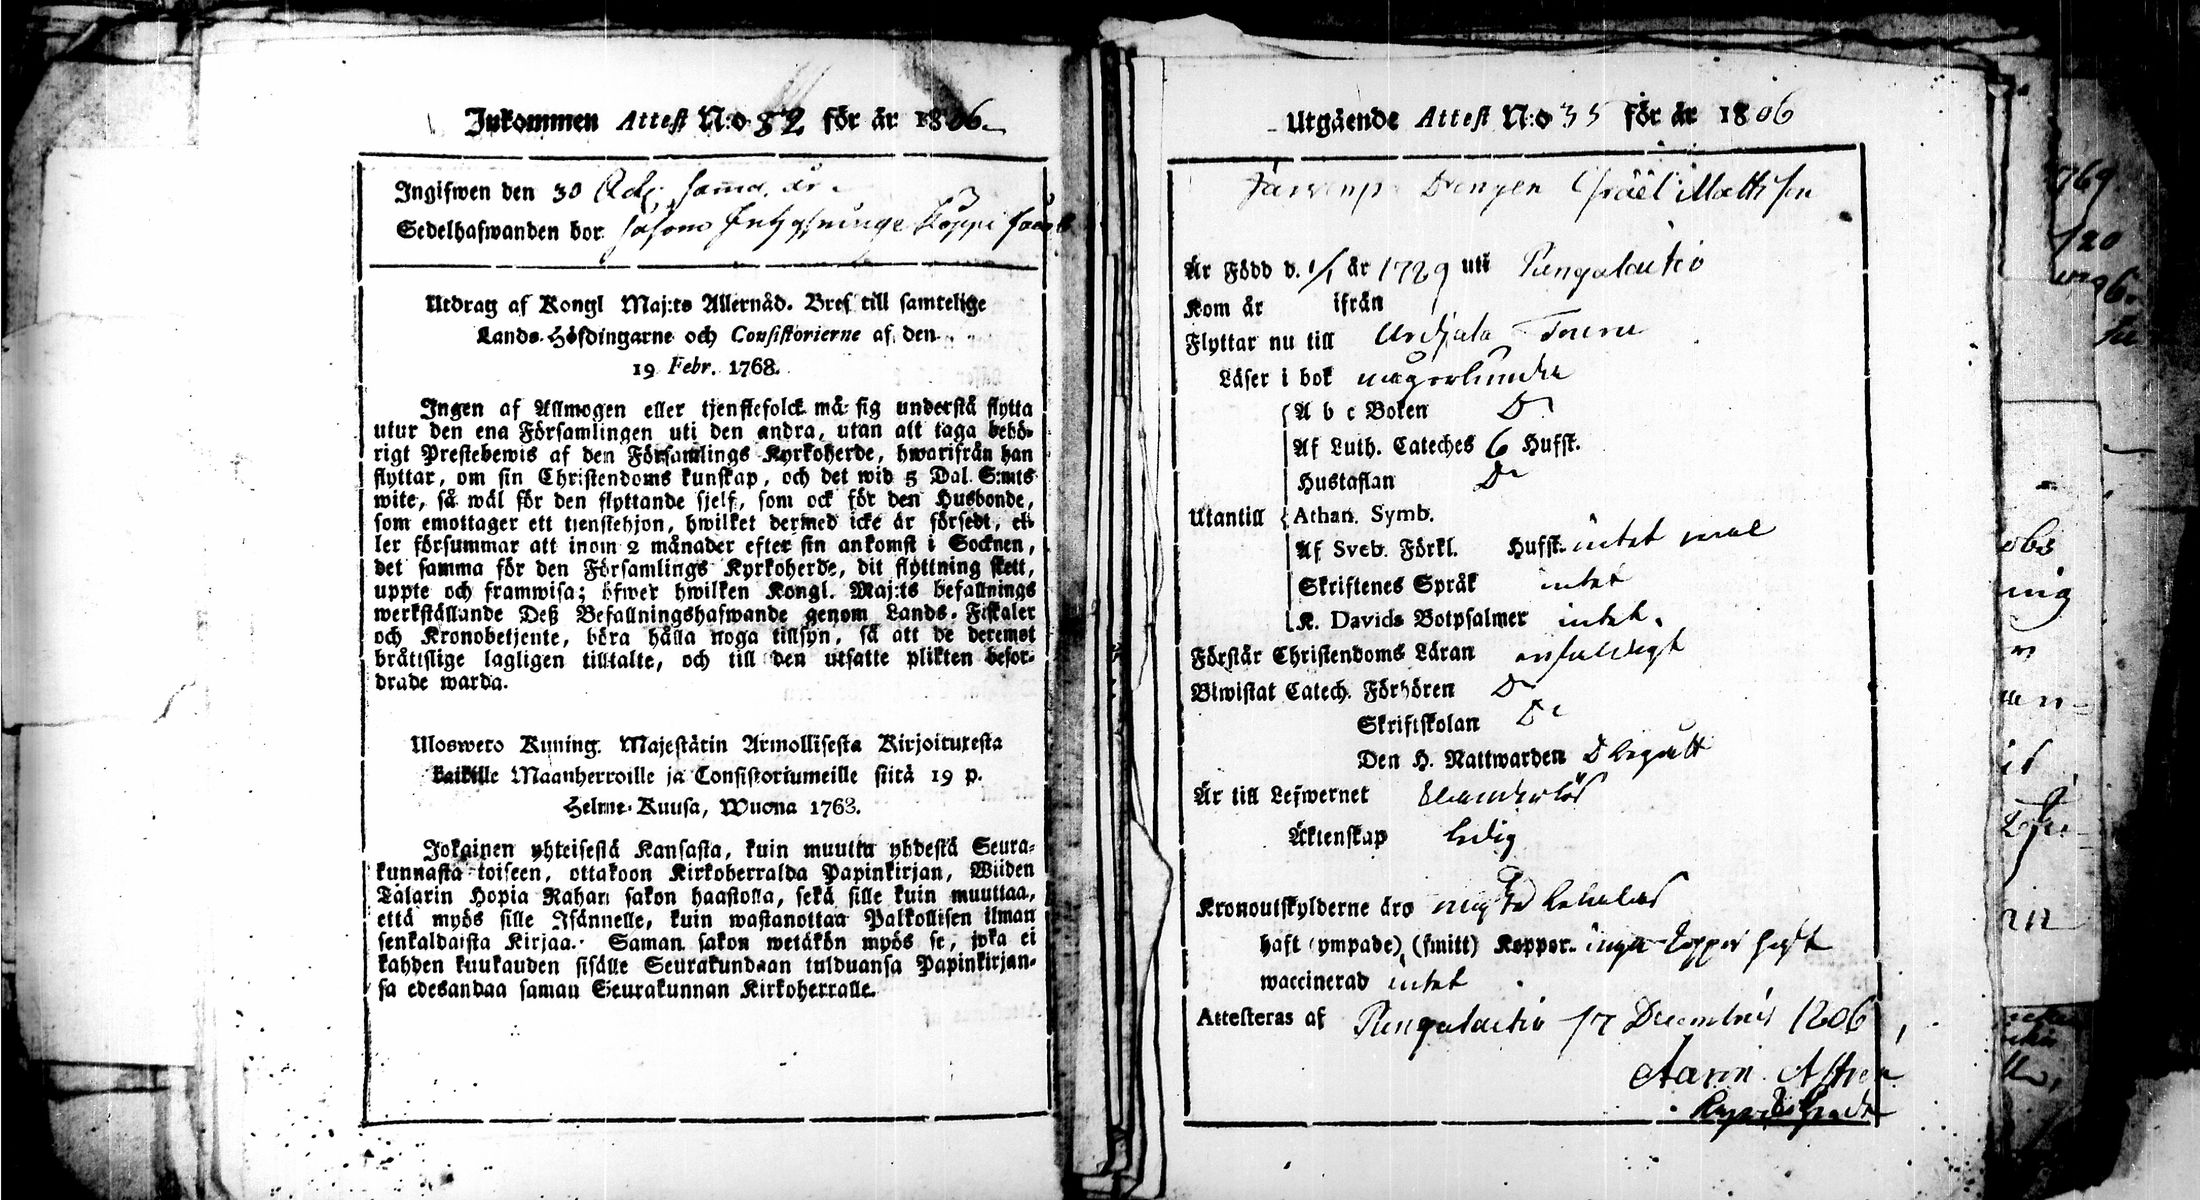 Inkommen Attest N:o 82 för år 1806
Ingifwen den 30 samma år
Sedelhafwanden bor såsom
Utdrag af Kongl Maj:ts Allernåd. Bref till samtelige
Lands-Höfdingarne och Consistorierne af den
19 Febr. 1768.
Ingen af Allmogen eller tjenstefolck må sig understå flytta
utur den ena Församlingen uti den andra, utan att taga behö-
rigt Prestebewis af den Församlings Kyrkoherde, hwarifrån han
flyttar, om sin Christendoms kunskap, och det wid 5 Dal. S:mts
wite, så wäl för den flyttande sjelf, som ock för den Husbonde,
som emottager ett tienstehjon, hwilket dermed icke är försedt, el-
ler försummar att inom 2 månader efter sin ankomst i Socknen,
det samma för den Församlings Kyrkoherde, dit flyttning skett,
uppte och framwisa; öfwer hwilken Kongl. Maj:ts befallnings
werkställande Deß Befallningshafwande genom Lands-Fiskaler
och Kronobetjente, böra hålla noga tillsyn, så att de deremot
bråttslige lagligen tilltalte, och till den utsatte plikten befor-
drade warda.
Uloswero Kuning. Majestätin Armollisesta Kirjoituxesta
kaikille Maanherroille ja Consistoriumeille siitä 19 p.
Helme-Kuusa, Wuona 1768.
Jokainen yhteisestä Kansasta, kuin muutta yhdestä Seura-
kunnasta toiseen, ottakoon Kirkoherralda Papinkirjan, Wiiden
Talarin Hopia Rahan sakon haastolla, sekä sille kuin muuttaa,
että myös sille Isännelle, kuin wastanottaa Palkollisen ilman
senkaldaista Kirjaa. Saman sakon wetäkön myös se, joka ei
kahden kuukauden sisälle Seurakundaan tulduansa Papinkirjan-
sa edesandaa saman Seurakunnan Kirkoherralle.
Utgående Attest N:o 35 för år 1806
Drengen Israël Mattsson
Är Född d. 1/1 år 1789 uti Pungalaitio
Kom år ifrån
Flyttar nu till Urdjala
Läser i bok någorlunda
A b c Boken Do
Af Luth. Cateches 6 Hufst.
Hustaflan Do
Utantill Athan. Symb.
Af Sveb. Förkl. Hufst. intet
Skriftenes Språk intet
K. Davids Botpsalmer intet.
Förstår Christendoms Läran enfaldigt
Biwistat Catech. Förhören Do
Skriftskolan Do
Den H. Nattwarden begått
Är till Lefwernet klanderlös
Äktenskap ledig
Kronoutskylderne äro betalat
haft (ympade) (smitt) Koppor. inga koppor haft
waccinerad intet
Attesteras af Pungalaitio 17 Decembris 1806